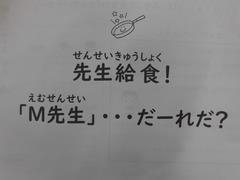 せんせいきゅうしょく
先生給食！
えむせんせい
「M先生」・・・だーれだ？